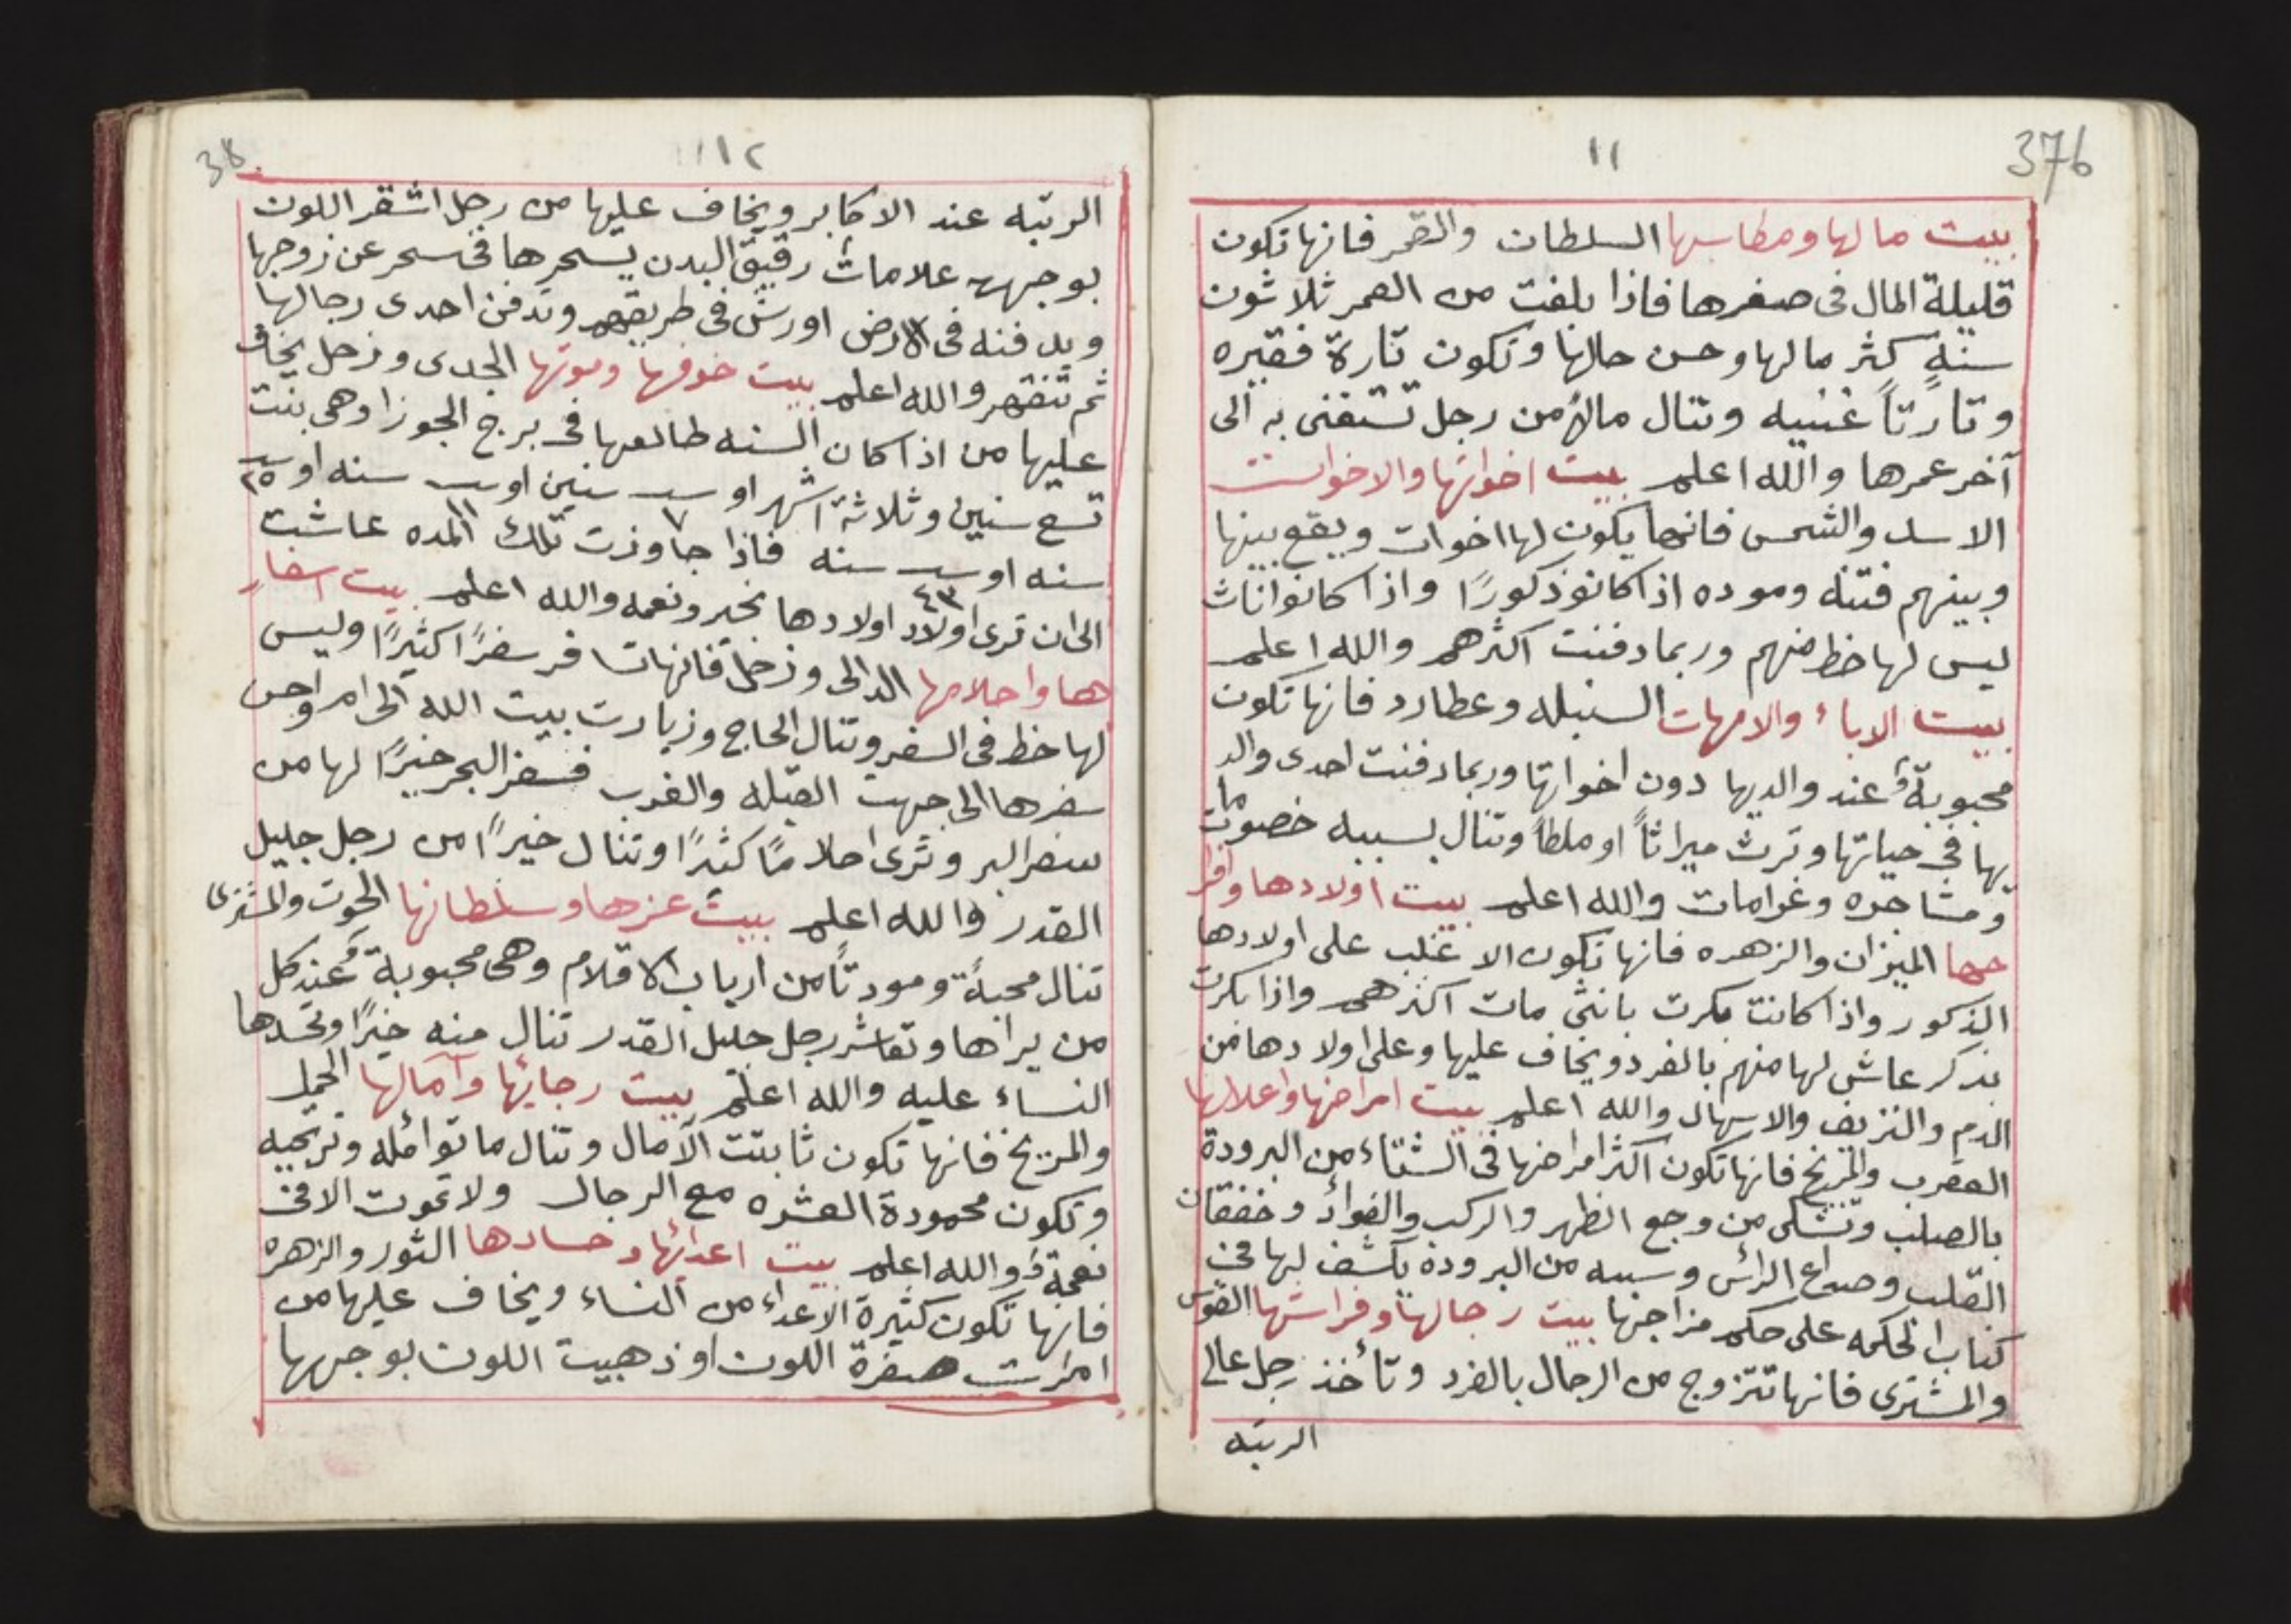 376
١١
بيت مالها ومطاسبها السلطان والقمر فانها تكون
قليلة المال فى صغرها فاذا بلغت من العمر ثلاثون
سنةٍ كثر مالها وحسن حالها وتكون تارة فقيره
وتارتاً غنيه وتنال مالاً من رجل تستغنى به الى
آخر عمرها والله اعلم بيت اخواتها والاخوات
الاسد والشمس فانها يكون لها اخوات ويقع بينها
وبينهم فتنه وموده اذا كانو ذكورًا واذا كانوا اناث
ليس لها حظ منهم وربما دفنت اكثرهم والله اعلم
بيت الاباء والامهات السنبله وعطارد فانها تكون
محبوبةً عند والديها دون اخواتها وربما دفنت احدى والد
يها فى حياتها وترث ميراثاً او ملطاً وتنال بسببه خصومات
ومشاجره وغرامات والله اعلم بيت اولادها وافرا
حها الميزان والزهره فانها تكون الاغلب على اولادها
الذكور واذا كانت بكرت بانثى مات اكثرهم واذا بكرت
بذكر عاش لها منهم بالفرد ويخاف عليها وعلى اولادها من
الدم والنزيف والاسهال والله اعلم بيت امراضها واعلالها
العقرب والمريخ فانها تكون اكثر امراضها فى الشتاء من البرودة
بالصلب وتشكى من وجع الظهر والركب والفوائد وخفقان
القلب وصداع الرأس وسببه من البرودة يكشف لها فى
كتاب الحكمه على حكم مزاجها بيت رجالها وفراشها القوس
والمشترى فانها تتزوج من الرجال بالفرد وتأخذ رجل عالى
الرتبه
38
١٢
الرتبه عند الاكابر ويخاف عليها من رجل اشقر اللون
بوجهه علامات رقيق البدن يسحرها فى سحر عن زوجها
ويدفنه فى الارض او رش فى طريقهم وتدفن احدى رجالها
ثم تنقهر والله اعلم بيت خوفها وموتها الجدى وزحل يخاف
عليها من اذا كان السنه طالعها فى برج الجوزا وهى بنت
تسع سنين وثلاثة اشهر او ٧ سنين او ١١ سنه او ٢٥
سنه او ٤٣ سنه فاذا جاوزت تلك المده عاشت
الى ان ترى اولاد اولادها بخير ونعمه والله اعلم بيت اسفار
ها واحلامها الدالى وزحل فانها تسافر سفرًا كثيرًا وليس
لها حظ فى السفر وتنال الحاج وزيارت بيت الله الى امر اوحس
سفرها الى جهت القبله والغرب فسفر البحر خيرًا لها من
سفر البر وترى احلامًا كثيرًا وتنال خيرًا من رجل جليل
القدر والله اعلم بيت عزها وسلطانها الحوت والمشترى
تنال محبةً ومودتاً من ارباب الاقلام وهى محبوبةً عند كل
من يراها وتعاشر رجل جليل القدر تنال منه خيرًا وتحسدها
النساء عليه والله اعلم بيت رجايها وآمالها الحمل
والمريخ فانها تكون ثابتت الآمال وتنال ما تؤامله وترتجيه
وتكون محمودة العشره مع الرجال ولا تموت الا فى
نعمةٍ والله اعلم بيت اعدائها وحسادها الثور والزهره
فانها تكون كثيرة الاعداء من النساء ويخاف عليها من
امرات صفرة اللون او ذهبيت اللون بوجهها